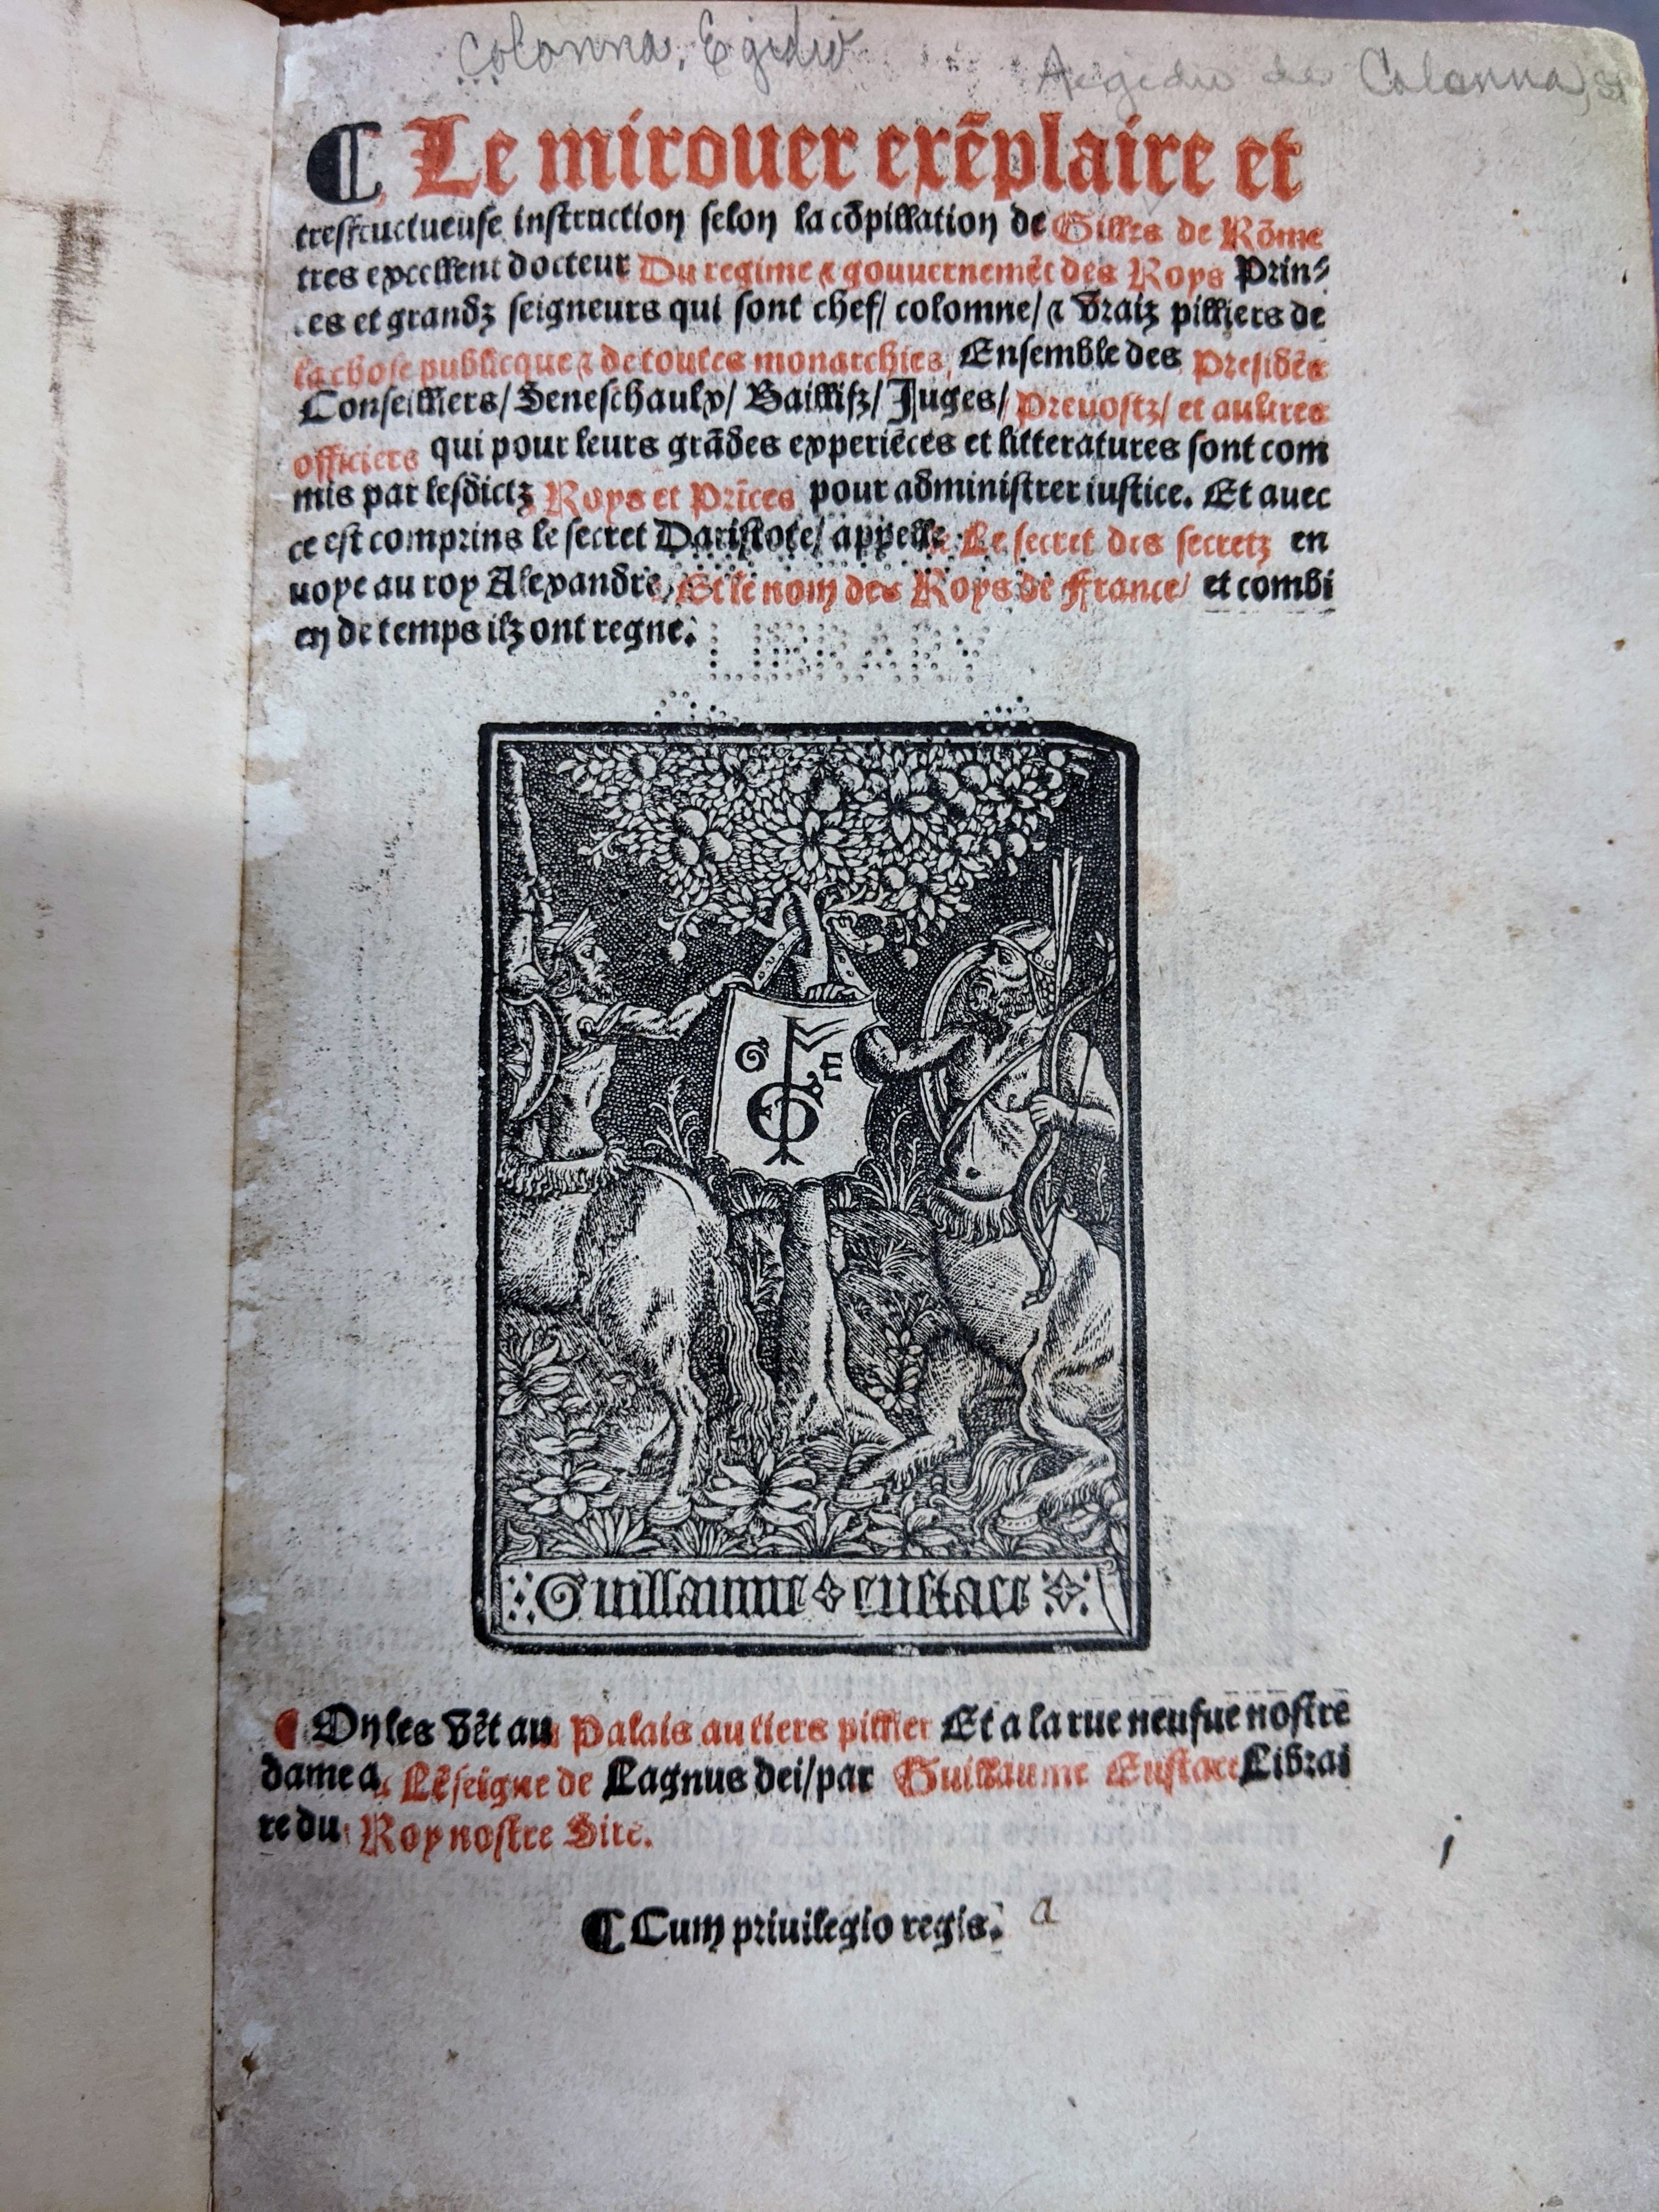 Colonna, Egidio
Aegedio de Colonna, 
¶ Le mirouer exẽplaire et
tresfructueuse instruction selon la cõpillation de Gilles de Rõme
tres excellent docteur Du regime ⁊ gouuernemẽt des Roys Prin⸗
ces et grandz seigneurs qui sont chef/ colomne/ ⁊ vraiz pilliers de
la chose publicque ⁊ de toutes monarchies, Ensemble des Presidẽs
Conseilliers/ Seneschaulx/ Baillifz/ Juges/ Preuostz/ et aultres
officiers qui pour leurs grãdes experiẽces et litteratures sont com
mis par lesdictz Roys et Prĩces pour administrer iustice. Et auec
ce est comprins le secret Daristote/ appelle Le secret des secretz en
uoye au roy Alexandre, Et le nom des Roys de France/ et combi
en de temps ilz ont regne.
LIBRARY
G E
Guillaume eustace
¶ On les vẽt au Palais au tiers pillier Et a la rue neufue nostre
dame a Lẽseigne de Lagnus dei/ par Guillaume Eustace Librai
re du Roy nostre Sire.
¶ Cum priuilegio regis. a
i